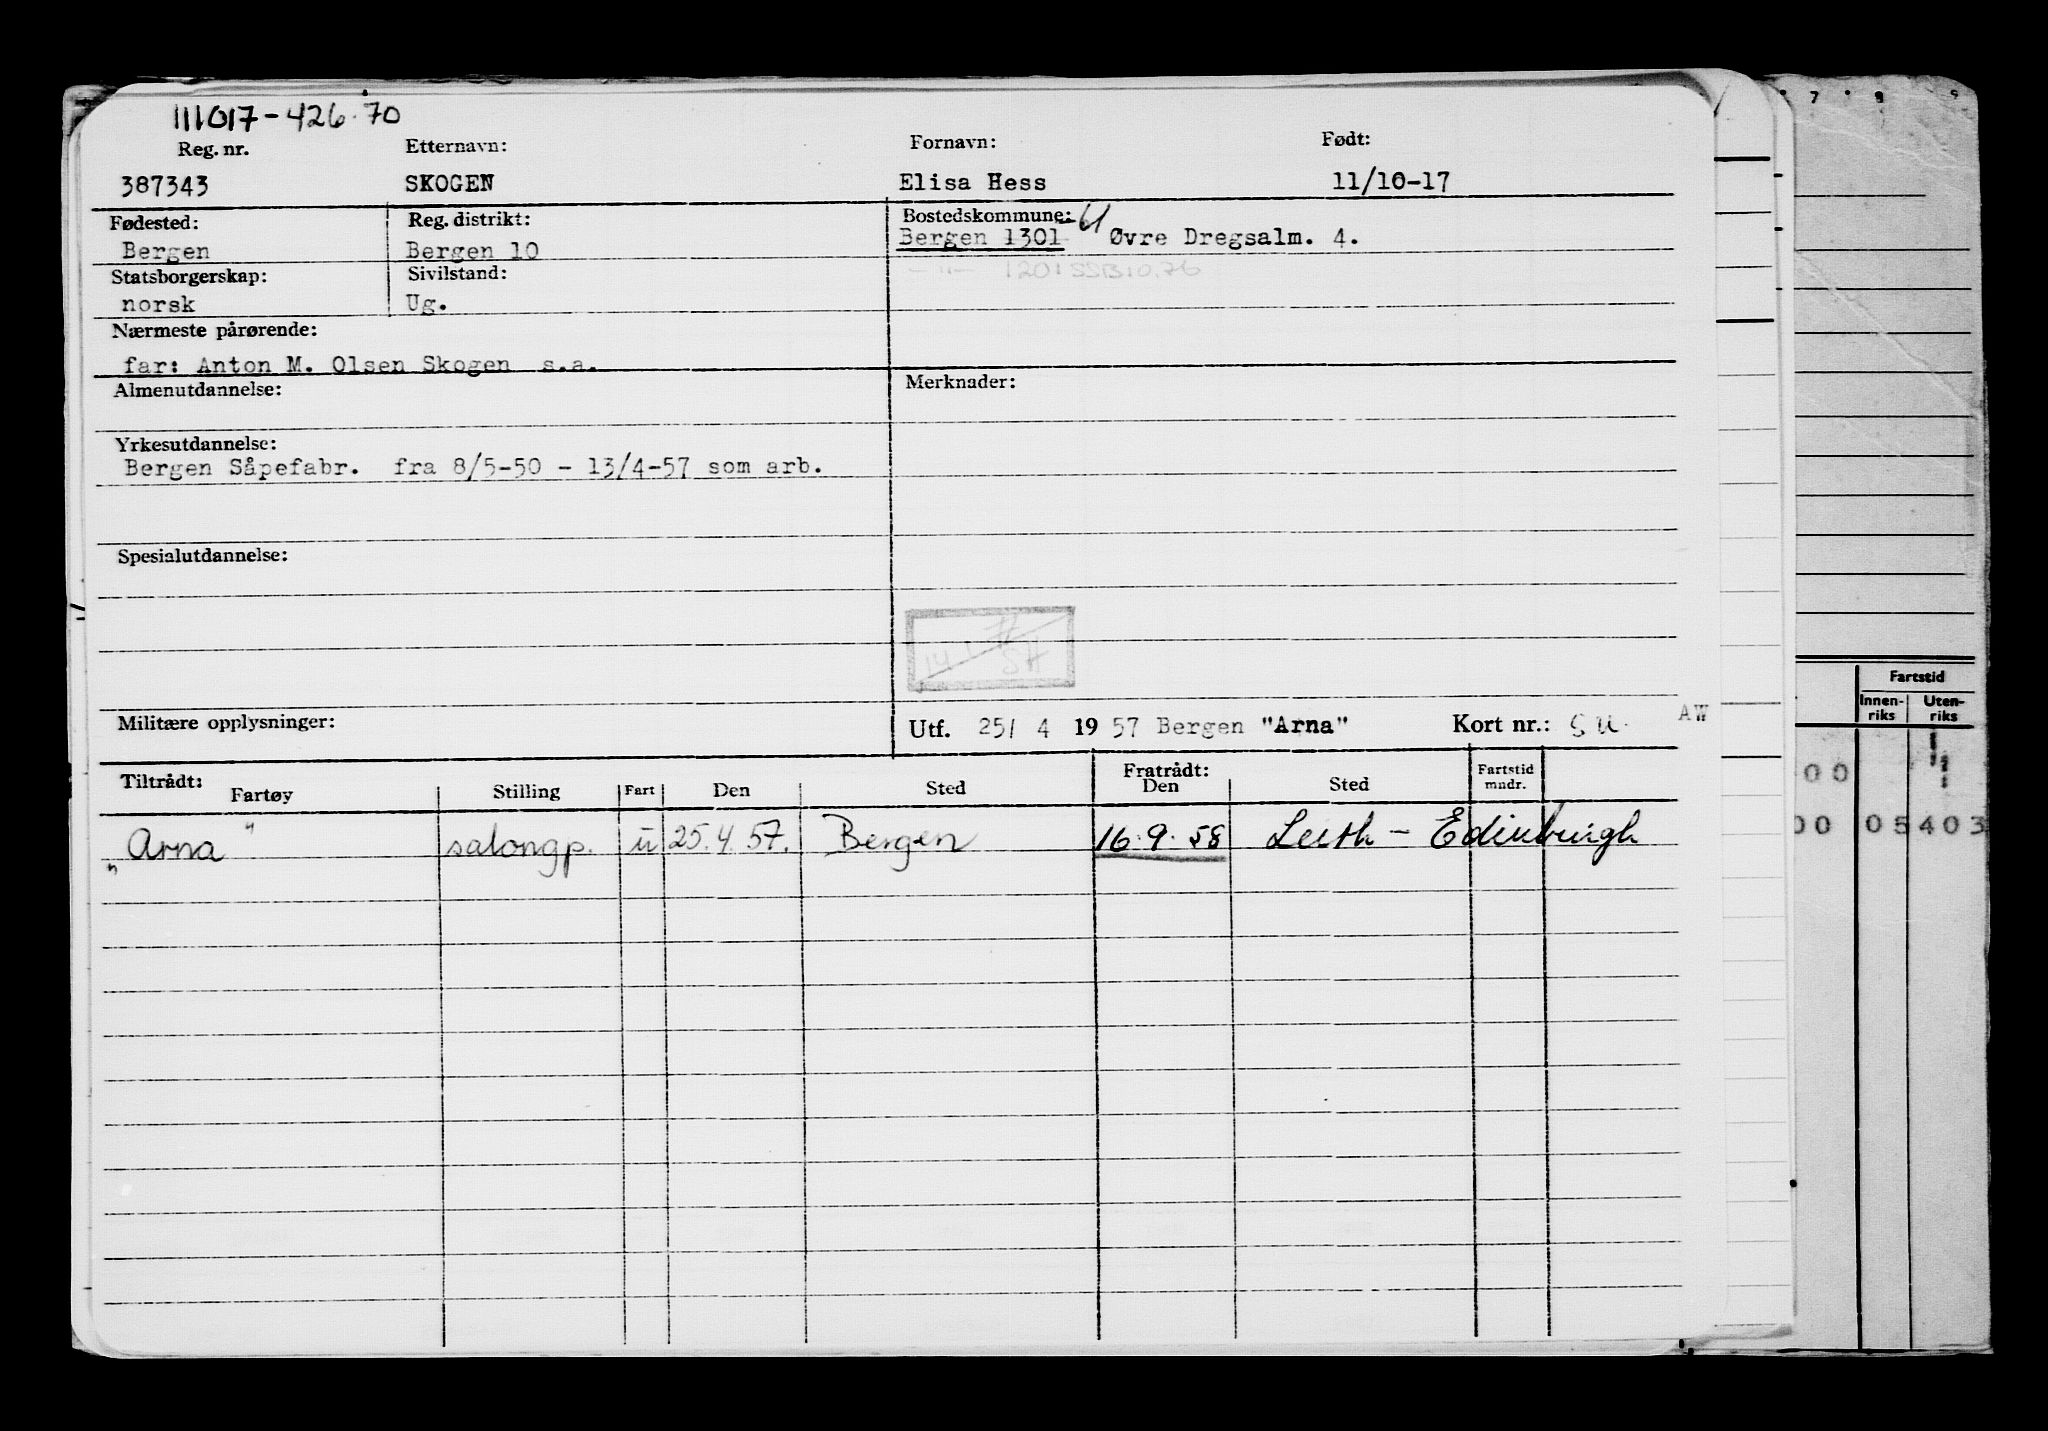 111017-426.70
Reg. nr. Etternavn: Fornavn: Født:
387343 SKOGEN Elisa Hess 11/10-17
Fødested: Reg. distrikt: Bostedskommune:
Bergen Bergen 10 Bergen 1301 Øvre Dregsalm. 4.
Statsborgerskap: Sivilstand: - " - 1201 SSB 10.76
norsk Ug.
Nærmeste pårørende:
far: Anton M. Olsen Skogen s.a.
Almenutdannelse: Merknader:
Yrkesutdannelse:
Bergen Såpefabr. fra 8/5-50 - 13/4-57 som arb.
Spesialutdannelse:
Militære opplysninger: Utf. 25/ 4 1957 Bergen "Arna" Kort nr.: AW
Tiltrådt: Fratrådt:
Fartøy Stilling Fart Den Sted Den Sted Fartstid mndr.
"Arna" salongp. u 25.4.57. Bergen 16.9.58 Leith - Edinburgh
7 8 9
Fartstid
Innen-riks Uten-riks
00
00 05 403